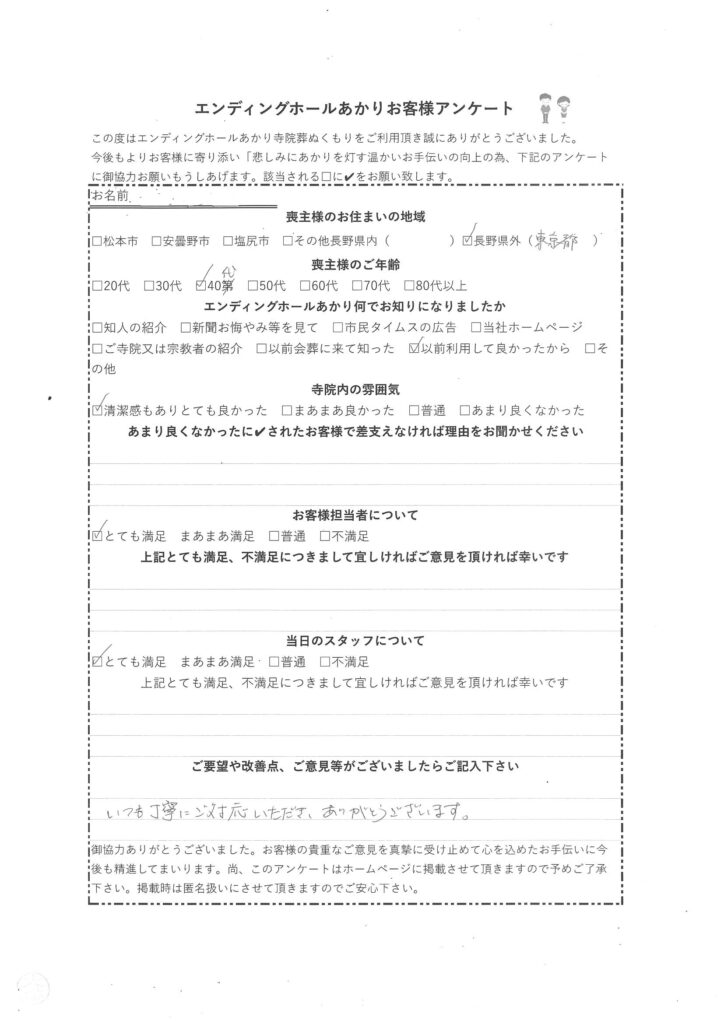 エンディングホールあかりお客様アンケート
この度はエンディングホールあかり寺院葬ぬくもりをご利用頂き誠にありがとうございました。
今後もよりお客様に寄り添い「悲しみにあかりを灯す温かいお手伝いの向上の為、下記のアンケート
に御協力お願いもうしあげます。該当される□に✔をお願い致します。
お名前
喪主様のお住まいの地域
□松本市 □安曇野市 □塩尻市 □その他長野県内（ ）☑長野県外（東京都 ）
喪主様のご年齢
□20代 □30代 ☑40代 □50代 □60代 □70代 □80代以上
エンディングホールあかり何でお知りになりましたか
□知人の紹介 □新聞お悔やみ等を見て □市民タイムスの広告 □当社ホームページ
□ご寺院又は宗教者の紹介 □以前会葬に来て知った ☑以前利用して良かったから □そ
の他
寺院内の雰囲気
☑清潔感もありとても良かった □まあまあ良かった □普通 □あまり良くなかった
あまり良くなかったに✔されたお客様で差支えなければ理由をお聞かせください
お客様担当者について
☑とても満足 まあまあ満足 □普通 □不満足
上記とても満足、不満足につきまして宜しければご意見を頂ければ幸いです
当日のスタッフについて
☑とても満足 まあまあ満足 □普通 □不満足
上記とても満足、不満足につきまして宜しければご意見を頂ければ幸いです
ご要望や改善点、ご意見等がございましたらご記入下さい
いつも丁寧にご対応いただき、ありがとうございます。
御協力ありがとうございました。お客様の貴重なご意見を真摯に受け止めて心を込めたお手伝いに今
後も精進してまいります。尚、このアンケートはホームページに掲載させて頂きますので予めご了承
下さい。掲載時は匿名扱いにさせて頂きますのでご安心下さい。